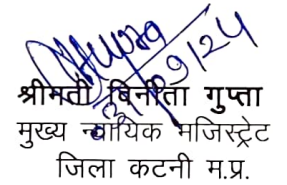 श्रीमती बिनीता गुप्ता
मुख्य न्यायिक मजिस्ट्रेट
जिला कटनी म.प्र.